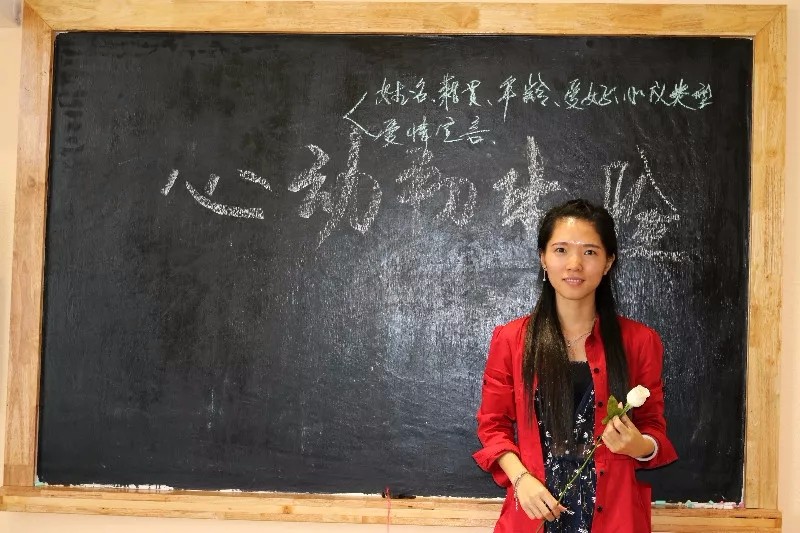 姓名、籍贯、年龄、爱好、心仪类型
爱情宣言、
心动初体验